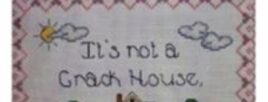 It's not a
Crack House,